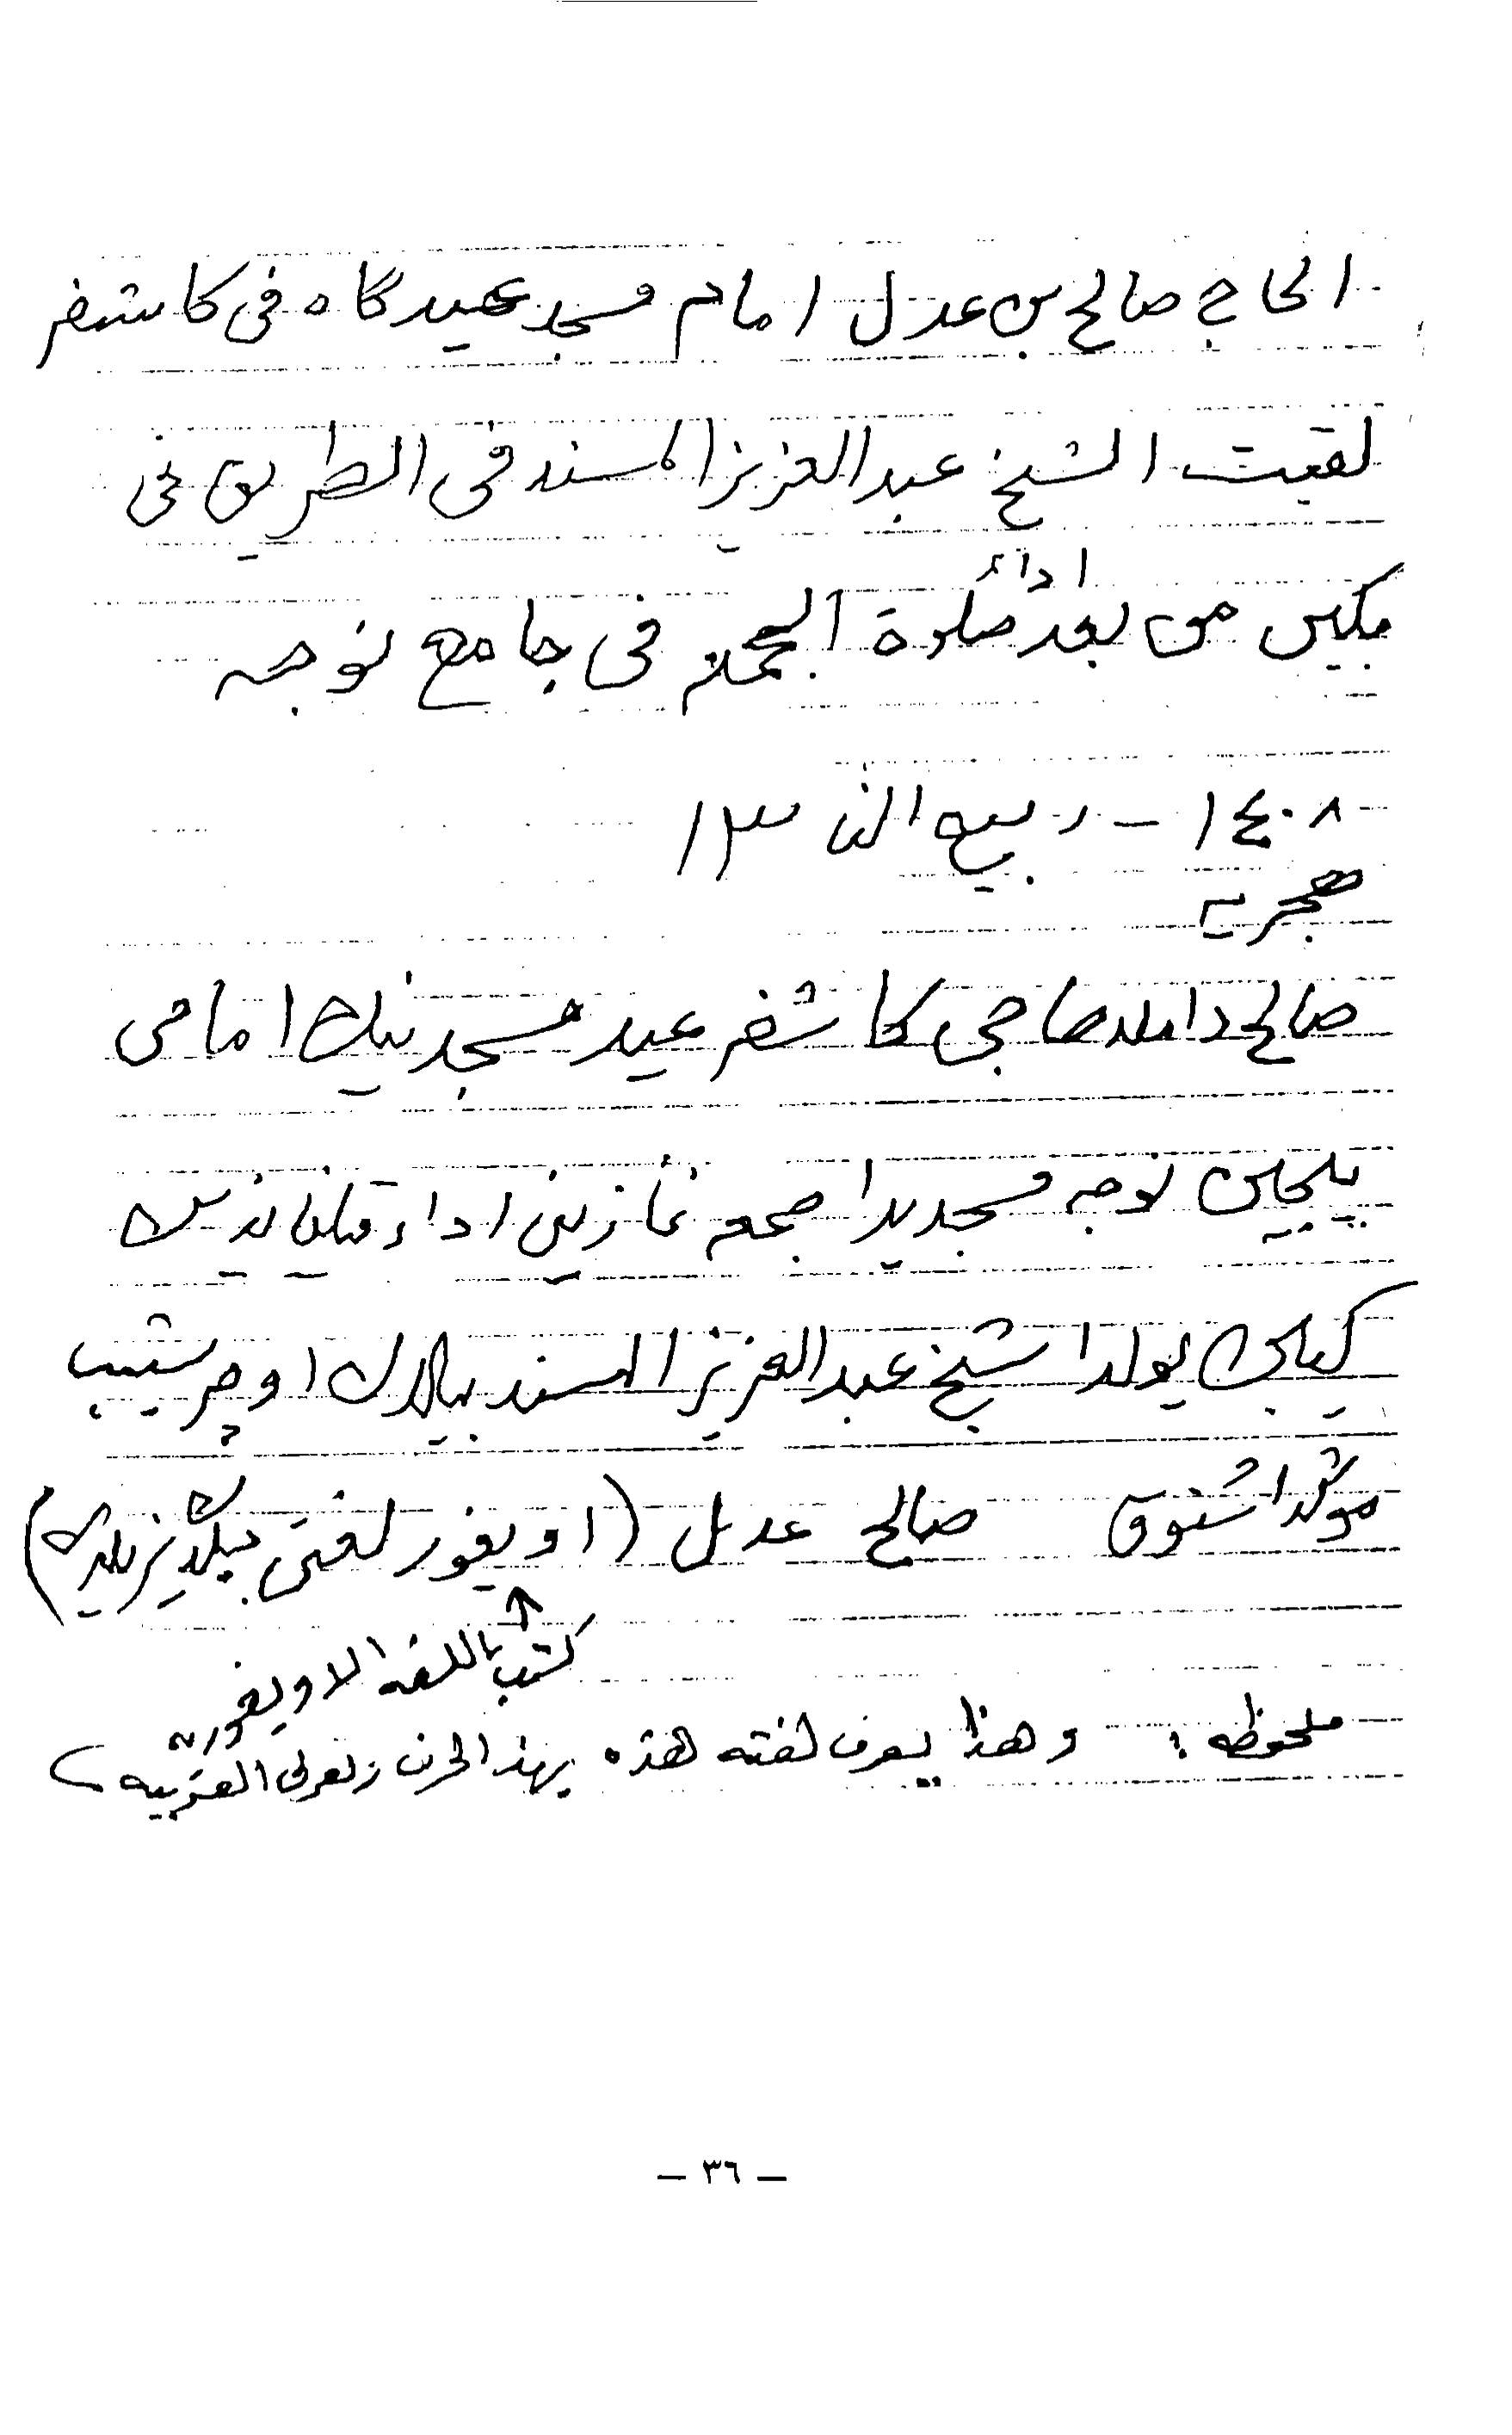 الحاج صالح بن عدل امام مسجد عيد كاه فى كاشغر
لقيت الشيخ عبد العزيز المسند فى الطريق فى
بكين من بعد اداء صلوة الجمعة فى جامع نوجه
١٤٠٨ - ربيع الثا ١٣
هجرية
صالح داملا حاجى كاشغر عيد مسجد نيك امامى
بيجين نوجه مسجديدا جمعه نمازينى اداء
يولدا شيخ عبد العزيز المسند بيلان اوچرشيب
صالح عدل (اويغور لغتى
↑
كتب باللغه الاويغوريه
ملحوظه : وهذا يعرف لغته هذه بهذا الحرف العربيه
— ٣٦ —